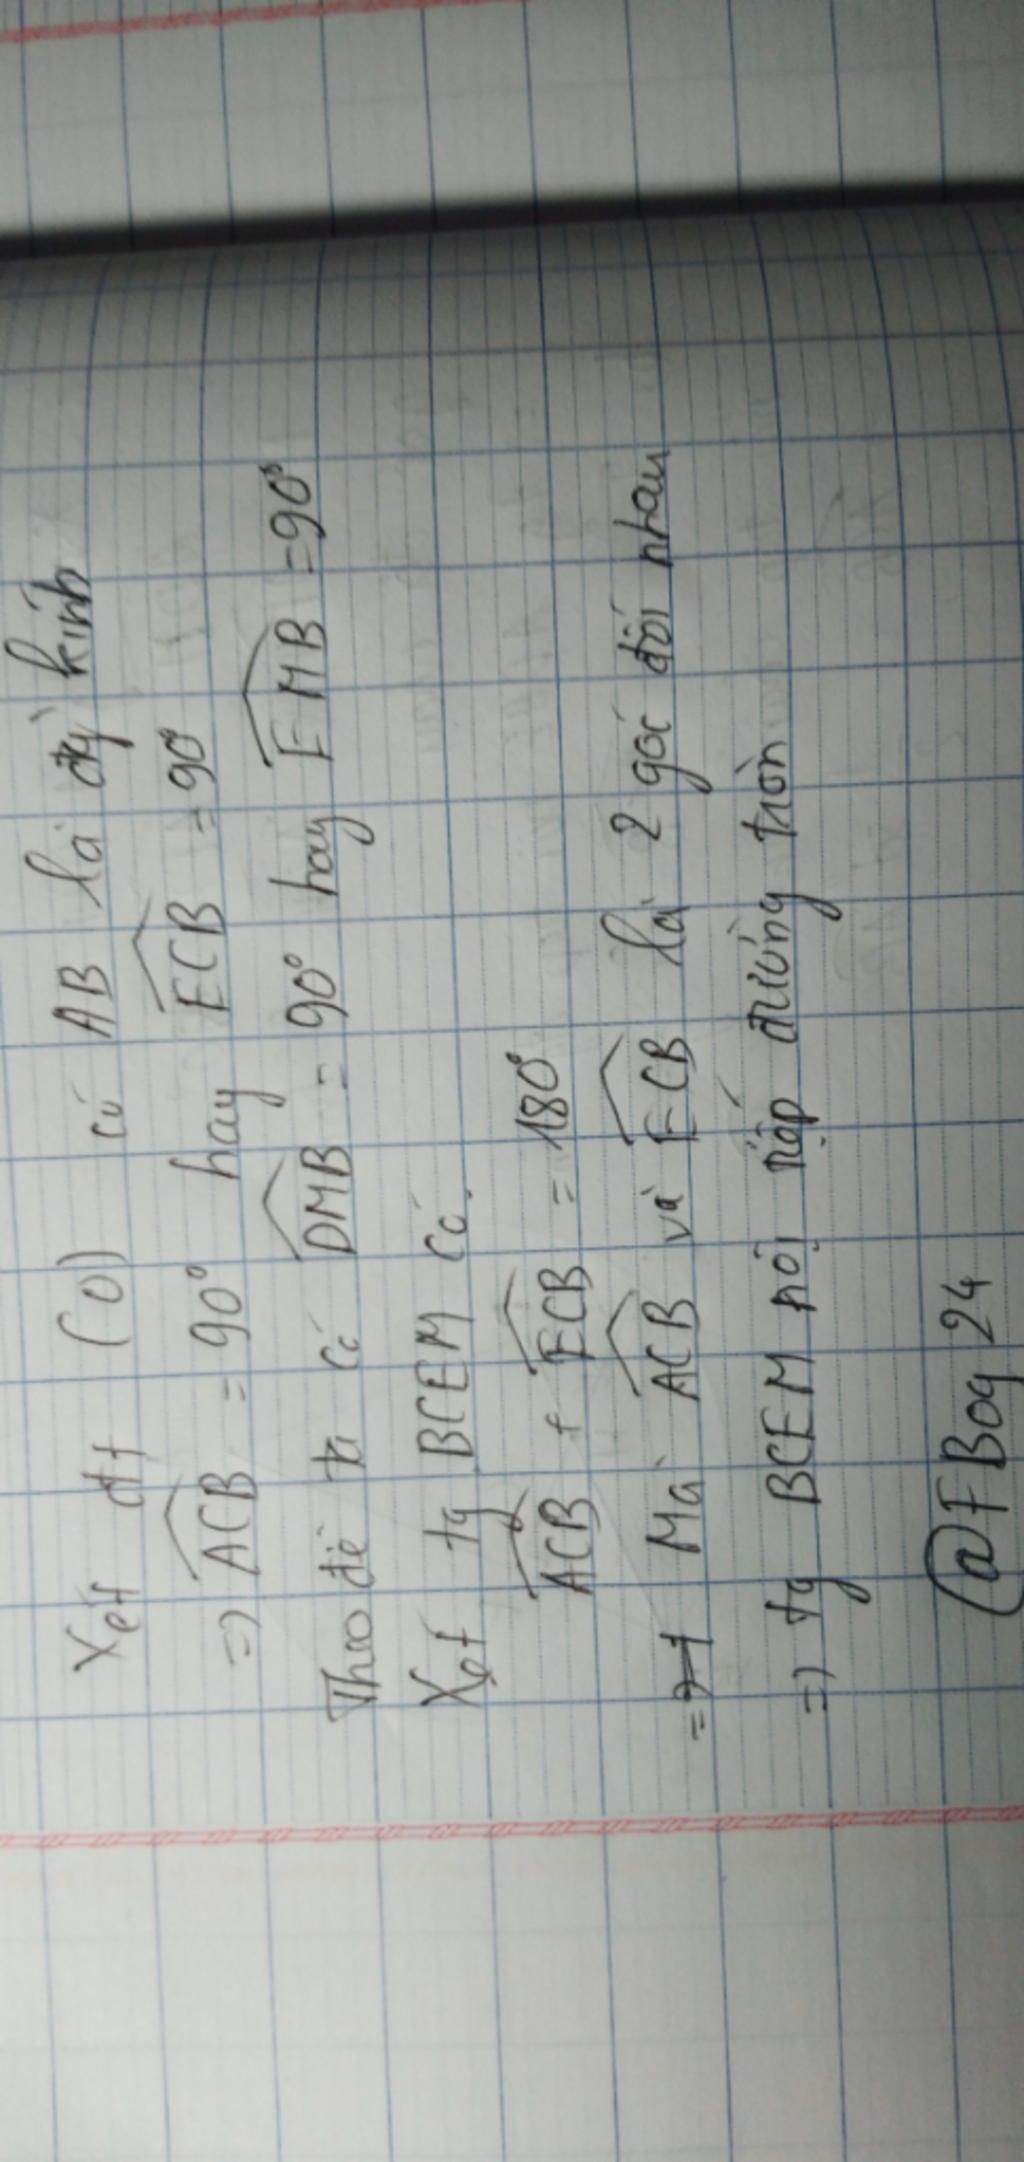 Xét đt (O) có AB là đg kính
=> ACB = 90° hay ECB = 90°
Theo đề ta có DMB = 90° hay EMB = 90°
Xét tg BCEM có
ACB + ECB = 180°
Mà ACB và ECB là 2 góc đối nhau
=> tg BCEM nội tiếp đường tròn
@FBoy24